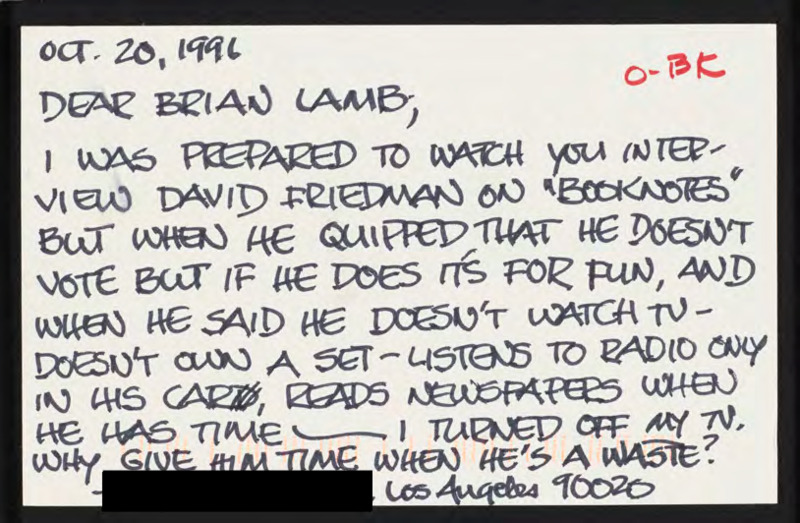 OCT. 20, 1996
O-BK
DEAR BRIAN LAMB;
I WAS PREPARED TO WATCH YOU INTER-
VIEW DAVID FRIEDMAN ON "BOOKNOTES"
BUT WHEN HE QUIPPED THAT HE DOESN'T
VOTE BUT IF HE DOES IT'S FOR FUN, AND
WHEN HE SAID HE DOESN'T WATCH TV -
DOESN'T OWN A SET - LISTENS TO RADIO ONLY
IN HIS CAR, READS NEWSPAPERS WHEN
HE HAS TIME —— I TURNED OFF MY TV.
WHY GIVE HIM TIME WHEN HE'S A WASTE?
Los Angeles 90020